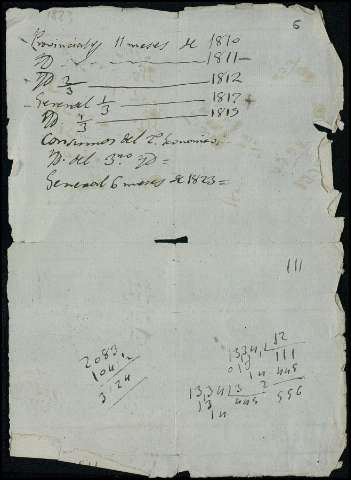 6
Provinciales 11 meses de 1810
Yd 1811
Yd 2/3 1812
General 1/3 1817
Yd 1/3 1815
Consumos del 2º Economico
Yd. del 3ro Yd =
General 6 meses de 1823 =
111
2083
104
3124
1334 12
013 111
1334 3 445
13 445 2 556